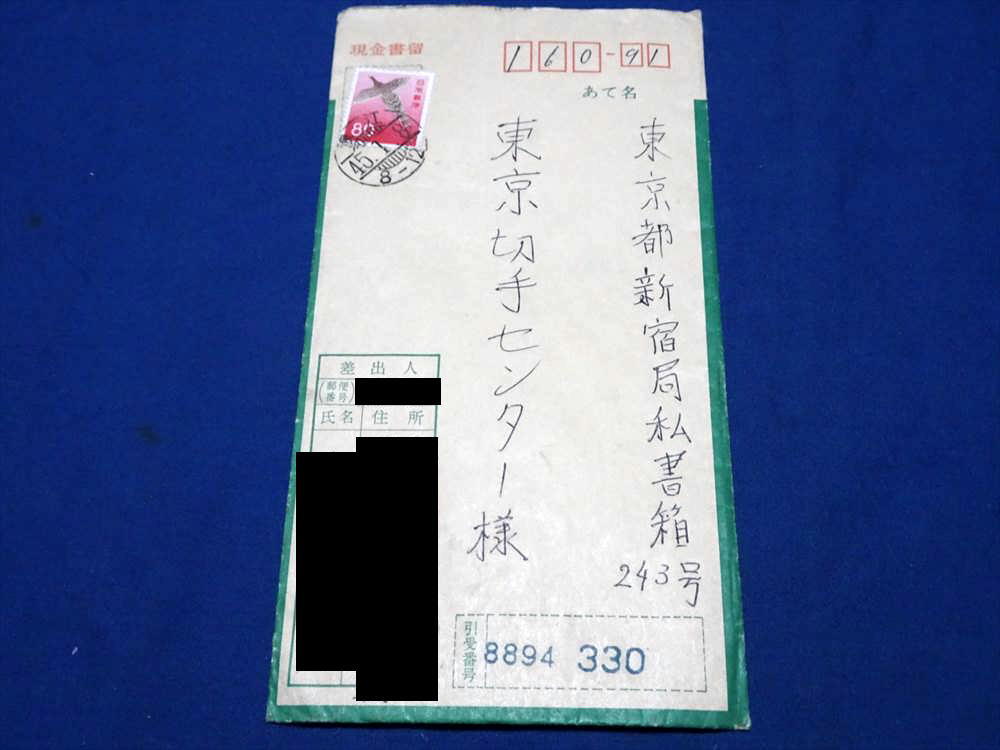 現金書留
160-91
あて名
東京都新宿局私書箱
243号
東京切手センター様
日本郵便
80
45.1
8-12
差出人
郵便番号
氏名
住所
引受番号
8894 330